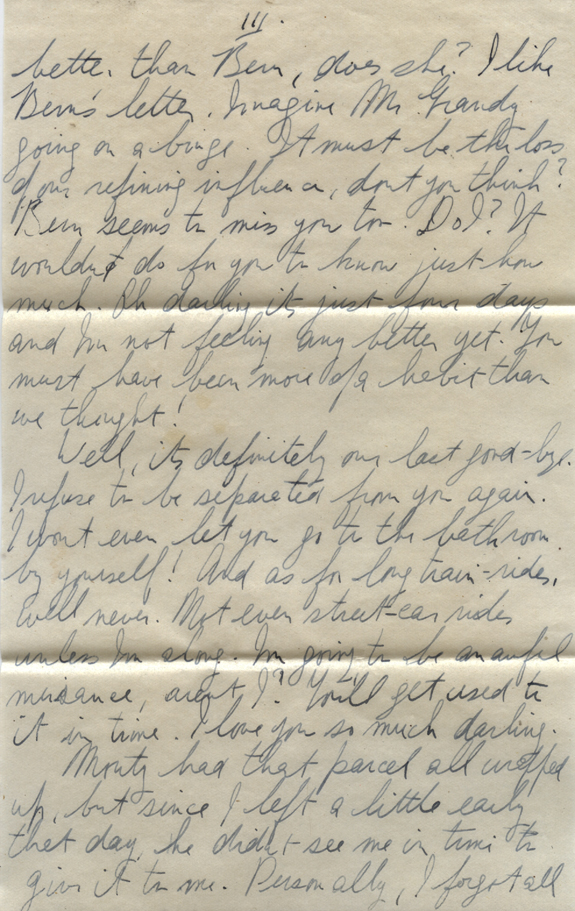 III.
better than Bern, does she? I like
Bern's letter. Imagine Mr Grandy
going on a binge. It must be the loss
of our refining influence, dont you think?
Bern seems to miss you too. Do I? It
wouldn't do for you to know just how
much. Oh darling its just four days
and Im not feeling any better yet. You
must have been more of a habit than
we thought!
Well, its definitely our last good-bye.
I refuse to be separated from you again.
I wont even let you go to the bathroom
by yourself! And as for long train-rides,
well never. Not even street-car rides
unless Im along. Im going to be an awful
nuisance, arent I? You'll get used to
it in time. I love you so much darling.
Monty had that parcel all wrapped
up, but since I left a little early
that day, he didn't see me in time to
give it to me. Personally, I forgot all